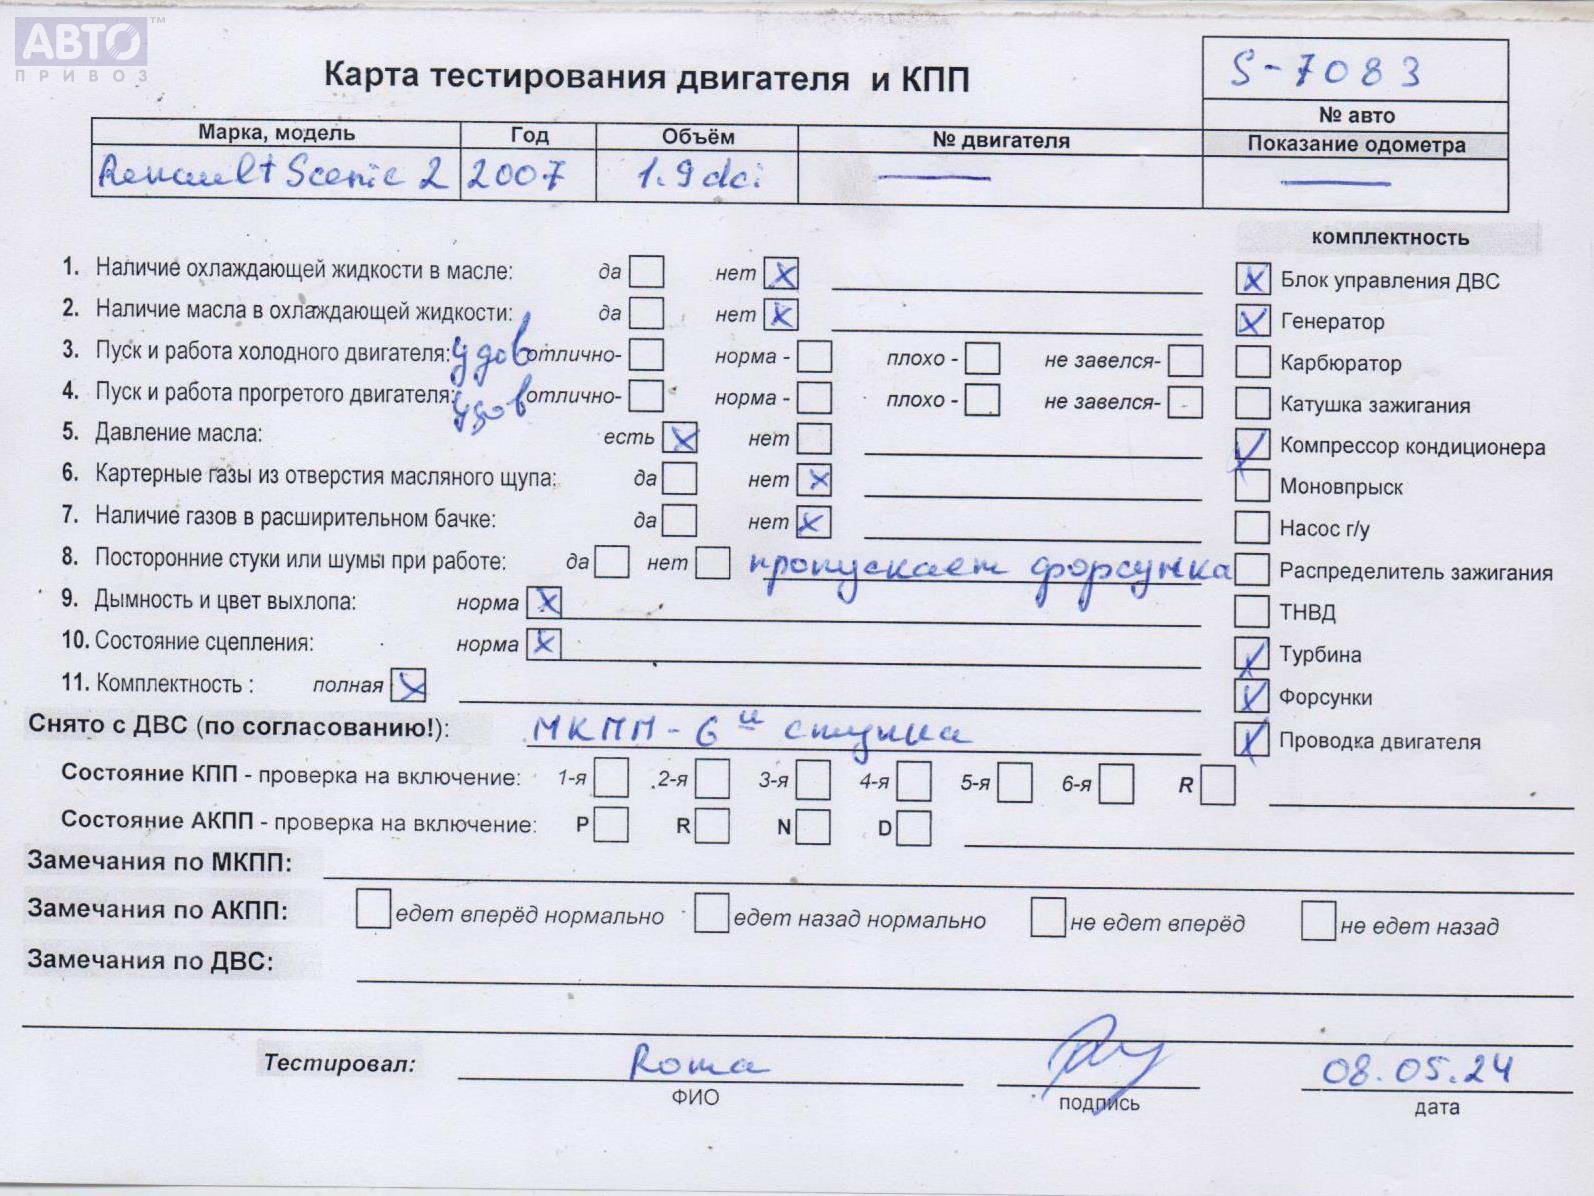 АВТО™
ПРИВОЗ
Карта тестирования двигателя и КПП
S-7083
№ авто
Марка, модель Год Объём № двигателя Показание одометра
Renault Scenic 2 2007 1.9 dci — —
комплектность
1. Наличие охлаждающей жидкости в масле: да нет X
2. Наличие масла в охлаждающей жидкости: да нет X
3. Пуск и работа холодного двигателя: удов отлично- норма - плохо - не завелся-
4. Пуск и работа прогретого двигателя: удов отлично- норма - плохо - не завелся-
5. Давление масла: есть X нет
6. Картерные газы из отверстия масляного щупа: да нет X
7. Наличие газов в расширительном бачке: да нет X
8. Посторонние стуки или шумы при работе: да нет пропускает форсунка
9. Дымность и цвет выхлопа: норма X
10. Состояние сцепления: норма X
11. Комплектность : полная X
X Блок управления ДВС
X Генератор
Карбюратор
Катушка зажигания
X Компрессор кондиционера
Моновпрыск
Насос г/у
Распределитель зажигания
ТНВД
X Турбина
X Форсунки
X Проводка двигателя
Снято с ДВС (по согласованию!): МКПП - 6 и ступка
Состояние КПП - проверка на включение: 1-я 2-я 3-я 4-я 5-я 6-я R
Состояние АКПП - проверка на включение: P R N D
Замечания по МКПП:
Замечания по АКПП: едет вперёд нормально едет назад нормально не едет вперёд не едет назад
Замечания по ДВС:
Тестировал: Roma 08.05.24
ФИО подпись дата